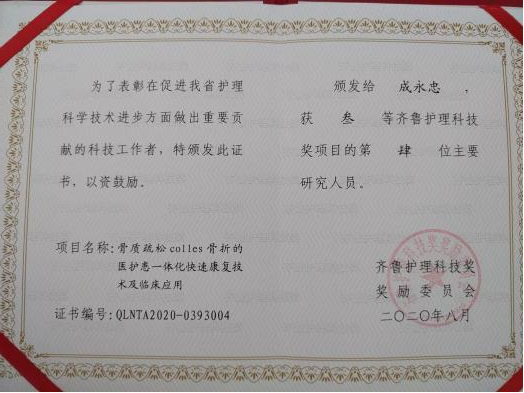 为了表彰在促进我省护理
科学技术进步方面做出重要贡
献的科技工作者，特颁发此证
书，以资鼓励。
项目名称：骨质疏松colles骨折的
医护患一体化快速康复技
术及临床应用
证书编号：QLNTA2020-0393004
颁发给 成永忠 ，
获 叁 等齐鲁护理科技
奖项目的第 肆 位主要
研究人员。
齐鲁护理科技奖
奖励委员会
二〇二〇年八月